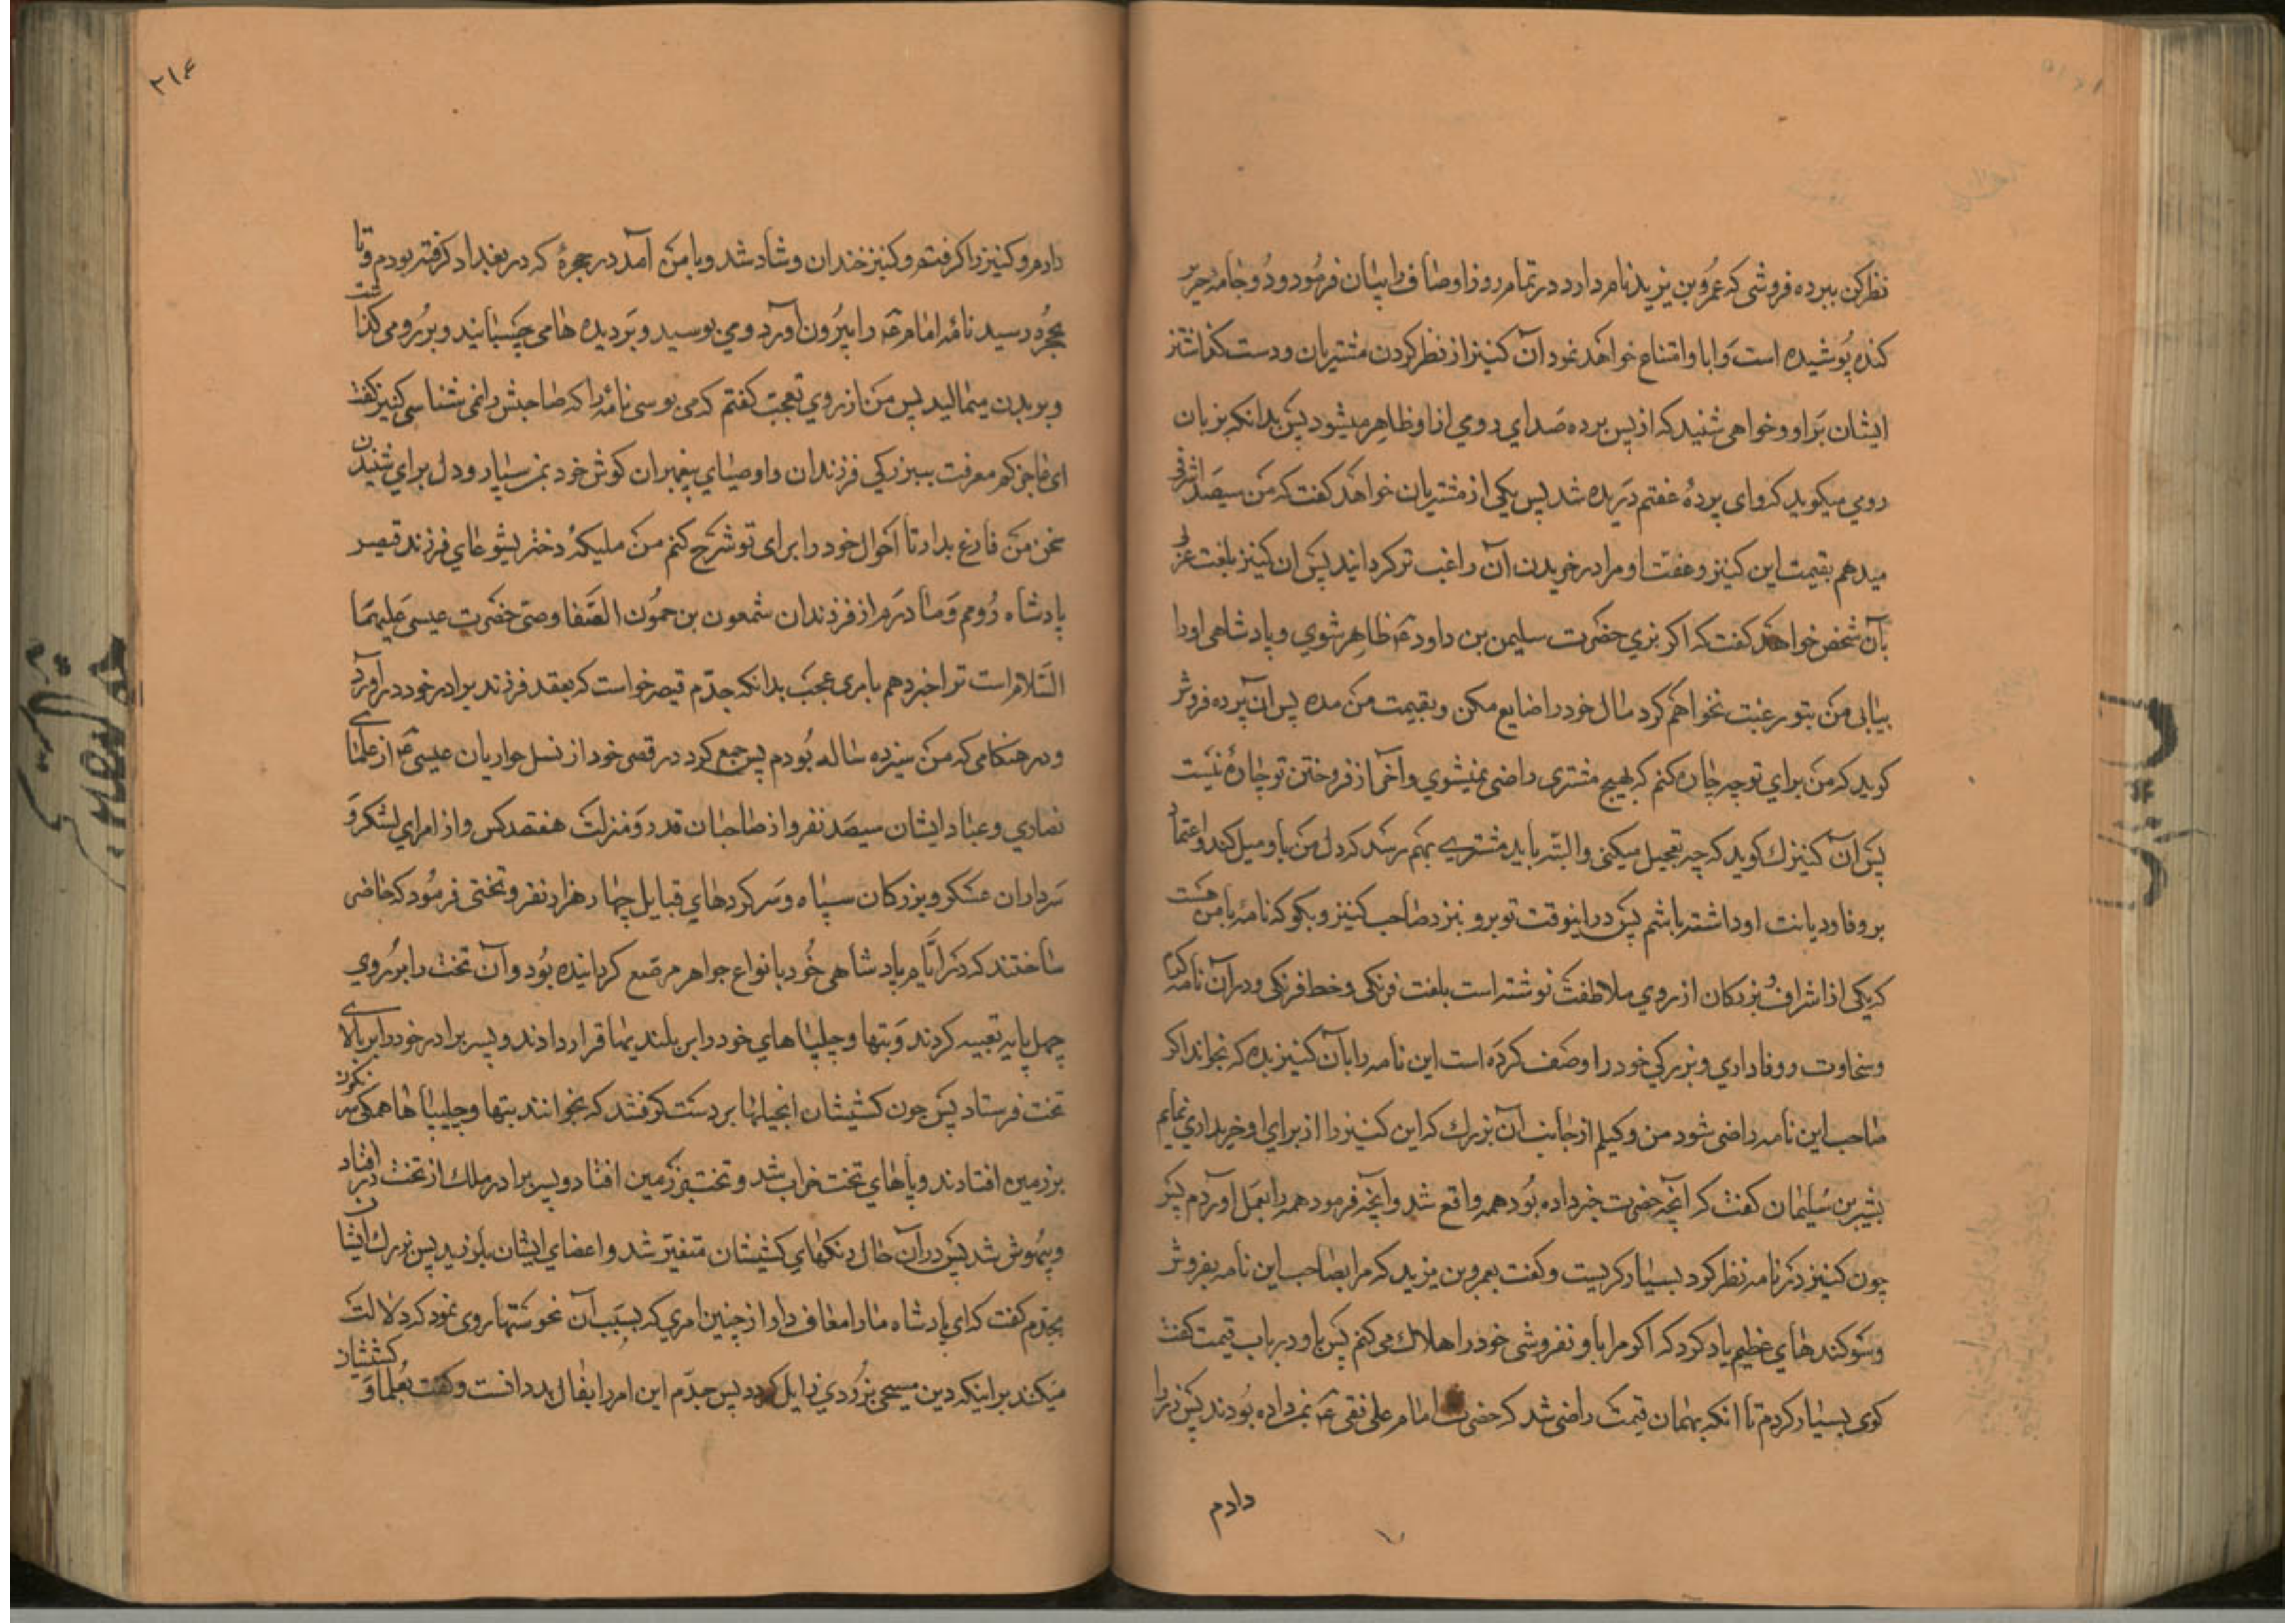 نظر کن ببرده فروشی که عمرو بن یزید نام دارد در تمام روز و اوصاف را بیان فرمود و دو جامه حریر
کنده پوشیده است و ابا و امتناع خواهد نمود آن کنیز از نظر کردن مشتریان و دست گذاشتن
ایشان بر او و خواهی شنید که از پس پرده صدای رومی از او ظاهر میشود پس بدانکه بزبان
رومی میکوید که وای پردهٔ عفتم دریده شد پس یکی از مشتریان خواهد کفت که من سیصد اشرفی
میدهم بقیمت این کنیز و عفت او مرا در خریدن آن راغب تر کردانید پس ان کنیز بلغت عربی
بآن شخص خواهد کفت که اکر بزی حضرت سلیمن بن داود ع ظاهر شوی و پادشاهی او را
بیابی من بتو رغبت نخواهم کرد مال خود را ضایع مکن و بقیمت من مده پس آن برده فروش
کوید که من برای تو چه چاره کنم که بهیچ مشتری راضی نمیشوی و آخر از فروختن تو چارهٔ نیست
پس آن کنیزک کوید که چه تعجیل میکنی و البته باید مشتری بهم رسد که دل من باو میل کند و اعتماد
بر وفا و دیانت او داشته باشم پس در اینوقت تو برو بنزد صاحب کنیز و بکو که نامهٔ با من هست
که یکی از اشراف و بزرکان از روی ملاطفت نوشته است بلغت فرنکی و خط فرنکی و در آن نامه کرم
و سخاوت و وفاداری و بزرکی خود را وصف کرده است این نامه را بآن کنیز بده که بخواند اکر
صاحب این نامه راضی شود من وکیلم از جانب آن بزرک که این کنیز را از برای او خریداری نمایم
بشیر بن سلیمان کفت که آنچه حضرت خبر داده بود همه واقع شد و آنچه فرمود همه را بعمل آوردم پس
چون کنیز در نامه نظر کرد بسیار کریست و کفت بعمرو بن یزید که مرا بصاحب این نامه بفروش
و سوکندهای عظیم یاد کرد که اکر مرا باو نفروشی خود را هلاک می کنم پس باو در باب قیمت کفت
کوی بسیار کردم تا انکه بهمان قیمت راضی شد که حضرت امام علی نقی ع بمن داده بودند پس زر را
دادم
۲۱۴
دادم و کنیز را کرفتم و کنیز خندان و شاد شد و با من آمد در حجرهٔ که در بغداد کرفته بودم و تا
بحجره رسید نامهٔ امام ع را بیرون آورد و می بوسید و بر دیده ها می چسبانید و بر رو می کذاشت
و بر بدن میمالید پس من از روی تعجب کفتم که می بوسی نامهٔ را که صاحبش را نمی شناسی کنیز کفت
ای عاجز کم معرفت ببزرکی فرزندان و اوصیای پیغمبران کوش خود بمن سپار و دل برای شنیدن
سخن من فارغ بدار تا احوال خود را برای تو شرح کنم من ملیکهٔ دختر یشوعای فرزند قیصر
پادشاه رومم و مادرم از فرزندان شمعون بن حمون الصفا وصی حضرت عیسی علیهما
السلام است ترا خبر دهم بامری عجب بدانکه جدم قیصر خواست که بعقد فرزند برادر خود در آورد
و در هنکامی که من سیزده ساله بودم پس جمع کرد در قصر خود از نسل حواریان عیسی ع از علمای
نصاری و عباد ایشان سیصد نفر و از صاحبان قدر و منزلت هفتصد کس و از امرای لشکر و
سرداران عسکر و بزرکان سپاه و سرکردهای قبایل چهار هزار نفر و تختی فرمود که حاضر
ساختند که در ایام پادشاهی خود بانواع جواهر مرصع کردانیده بود و آن تخت را بر روی
چهل پایه تعبیه کردند و بتها و چلیپاهای خود را بر بلندیها قرار دادند و پسر برادر خود را بر بالای
تخت فرستاد پس چون کشیشان انجیلها بر دست کرفتند که بخوانند بتها و چلیپاها همکی سرنکون
بر زمین افتادند و پاهای تخت خراب شد و تخت بر زمین افتاد و پسر برادر ملک از تخت در افتاد
و بیهوش شد پس در آن حال رنکهای کشیشان متغیر شد و اعضای ایشان بلرزید پس بزرک ایشان
بجدم کفت که ای پادشاه ما را معاف دار از چنین امری که بسبب آن نحوستها روی نمود که دلالت
میکند بر اینکه دین مسیحی بزودی زایل کردد پس جدم این امر را بفال بد دانست و کفت بعلما و کشیشان